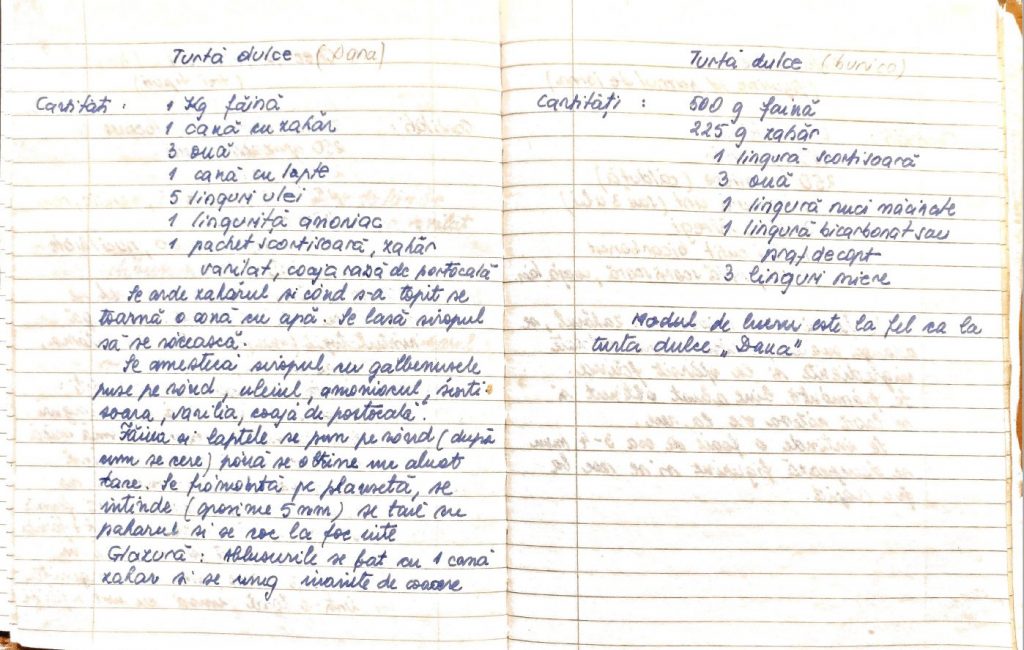 Turtă dulce (Dana)
Cantități : 1 Kg făină
1 cană cu zahăr
3 ouă
1 cană cu lapte
5 linguri ulei
1 linguriță amoniac
1 pachet scortisoară, zahăr
vanilat, coaja rasă de portocală
Se arde zahărul si când s-a topit se
toarnă o cană cu apă. Se lasă siropul
să se răcească.
Se amestică siropul cu galbenusele
puse pe rând, uleiul, amoniacul, scorti
soara, vanilia, coajă de portocală.
Făina si laptele se pun pe rând (după
cum se cere) până se obtine un aluat
tare. Se frământă pe plansetă, se
intinde (grosime 5 mm) se taie cu
paharul si se coc la foc iute
Glazură : Albusurile se bat cu 1 cană
zahar si se ung inainte de coacere
Turtă dulce (bunica)
Cantități : 500 g faină
225 g zahăr
1 lingură scortisoară
3 ouă
1 lingură nuci măcinate
1 lingură bicarbonat sau
praf de copt
3 linguri miere
Modul de lucru este la fel ca la
turta dulce „Dana"